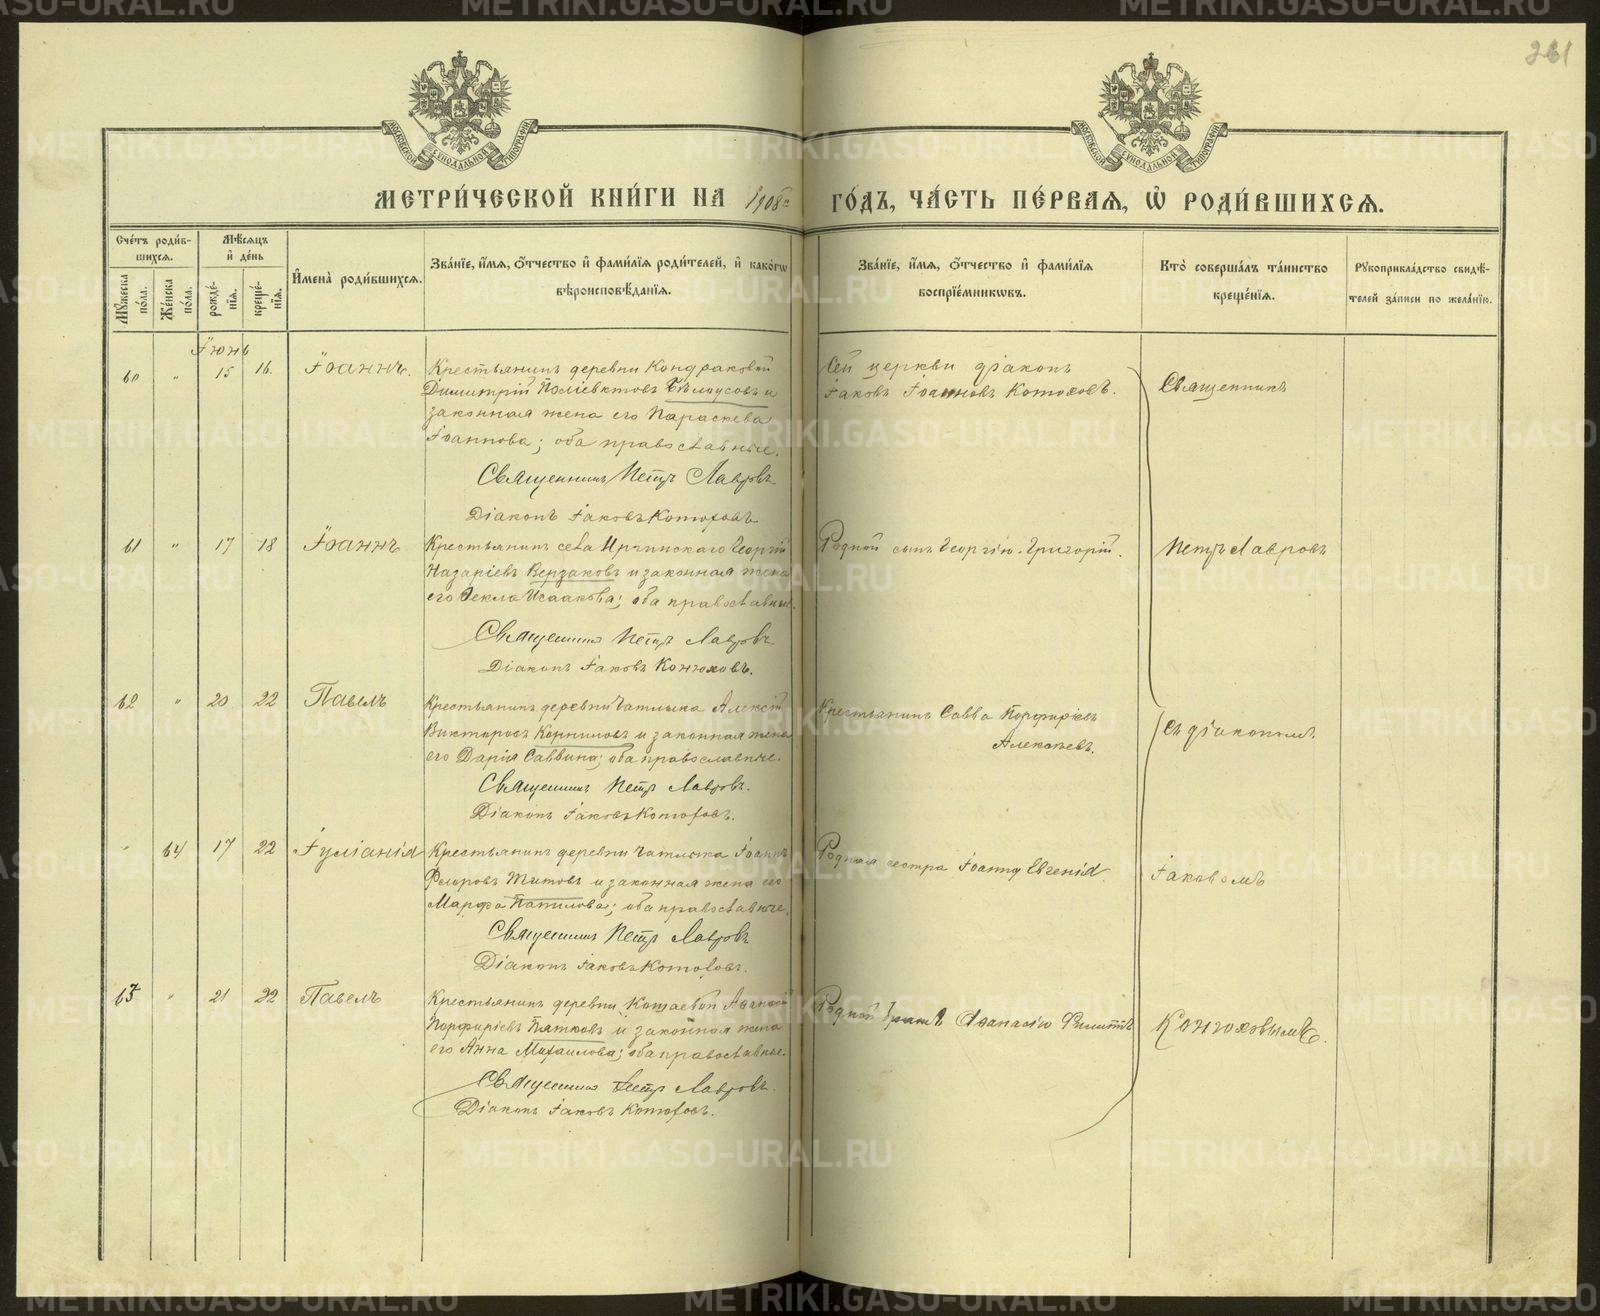 261
МОСКОВСКОЙ СѴНОДАЛЬНОЙ ТИПОГРАФІИ
МОСКОВСКОЙ СѴНОДАЛЬНОЙ ТИПОГРАФІИ
МЕТРИ́ЧЕСКОЙ КНИ́ГИ НА 1908й ГО́ДЪ, ЧА́СТЬ ПЕ́РВАЯ, Ѡ РОДИ́ВШИХСѦ.
Сче́тъ роди́вшихсѧ.
Мꙋжеска по́ла.
Же́нска по́ла.
Мѣ́сѧцъ и҆ де́нь
рожде́нїѧ.
креще́нїѧ.
И҆мена̀ роди́вшихсѧ.
Зва́нїе, и҆́мѧ, ѻ҆́тчество и҆ фами́лїѧ роди́телей, и҆ како́гѡ
вѣроисповѣ́данїѧ.
Зва́нїе, и҆́мѧ, ѻ҆́тчество и҆ фами́лїѧ
воспрїе́мникѡвъ.
Кто̀ соверша́лъ та́инство
креще́нїѧ.
Рꙋкоприкла́дство свидѣ́телей за́писи по жела́нїю.
Іюнь
60 " 15 16. Іоаннъ.
Крестьянинъ деревни Кондраковой
Димитрій Поліевктовъ Бѣлоусовъ и
законная жена его Параскева
Іоаннова; оба православные.
Священникъ Петръ Лавровъ
Діаконъ Іаковъ Конюховъ
Сей церкви діаконъ
Іаковъ Іоанновъ Конюховъ.
Священникъ
61 " 17 18 Іоаннъ
Крестьянинъ села Иргинскаго Георгій
Назаріевъ Верзаковъ и законная жена
его Ѳекла Исаакова; оба православные.
Священникъ Петръ Лавровъ
Діаконъ Іаковъ Конюховъ.
Родной сынъ Георгію Григорій.
Петръ Лавровъ
62 " 20 22 Павелъ
Крестьянинъ деревни Чатлыка Алексій
Викторовъ Корниловъ и законная жена
его Дарія Саввина; оба православные.
Священникъ Петръ Лавровъ.
Діаконъ Іаковъ Конюховъ.
Крестьянинъ Савва Порфиріевъ
Алексѣевъ.
съ діакономъ
" 64 17 22 Іуліанія
Крестьянинъ деревни Чатлыка Іоаннъ
Флоровъ Титовъ и законная жена его
Марѳа; оба православные.
Священникъ Петръ Лавровъ
Діаконъ Іаковъ Конюховъ.
Родная сестра Іоанну Евгенія.
Іаковомъ
63 " 21 22 Павелъ
Крестьянинъ деревни Кошаевой Аѳанасій
Порфиріевъ Пятковъ и законная жена
его Анна Михаилова; оба православные.
Священникъ Петръ Лавровъ.
Діаконъ Іаковъ Конюховъ.
Родной братъ Аѳанасію Филиппъ
Конюховымъ.
METRIKI.GASO-URAL.RU